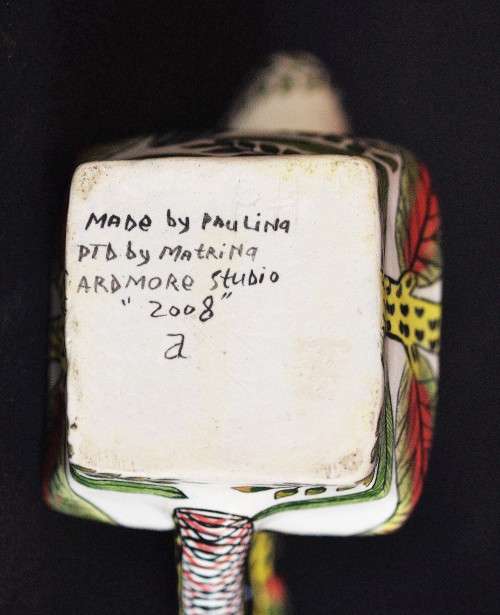 MADE by PAULINA
PTD by MATRINA
ARDMORE StUDIO
"2008"
a